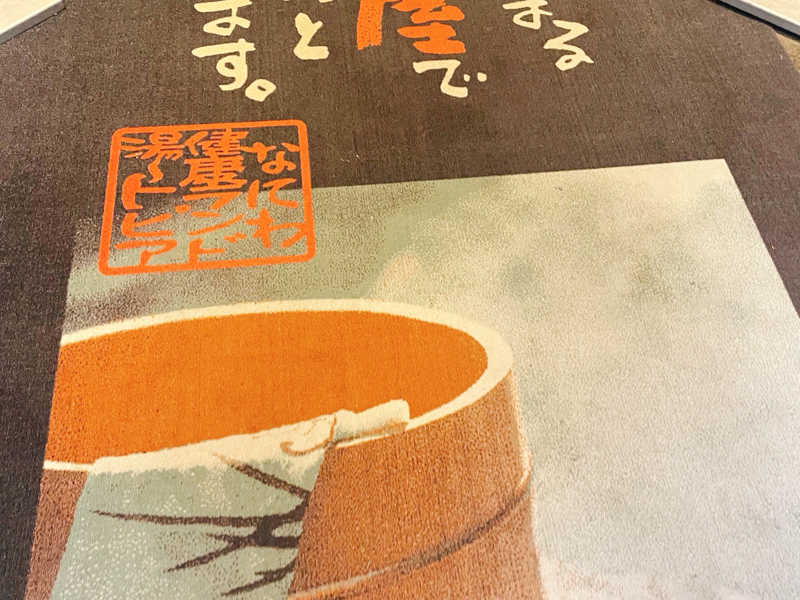 まる
屋で
と
ます。
なにわ
健康ランド
湯〜トピア